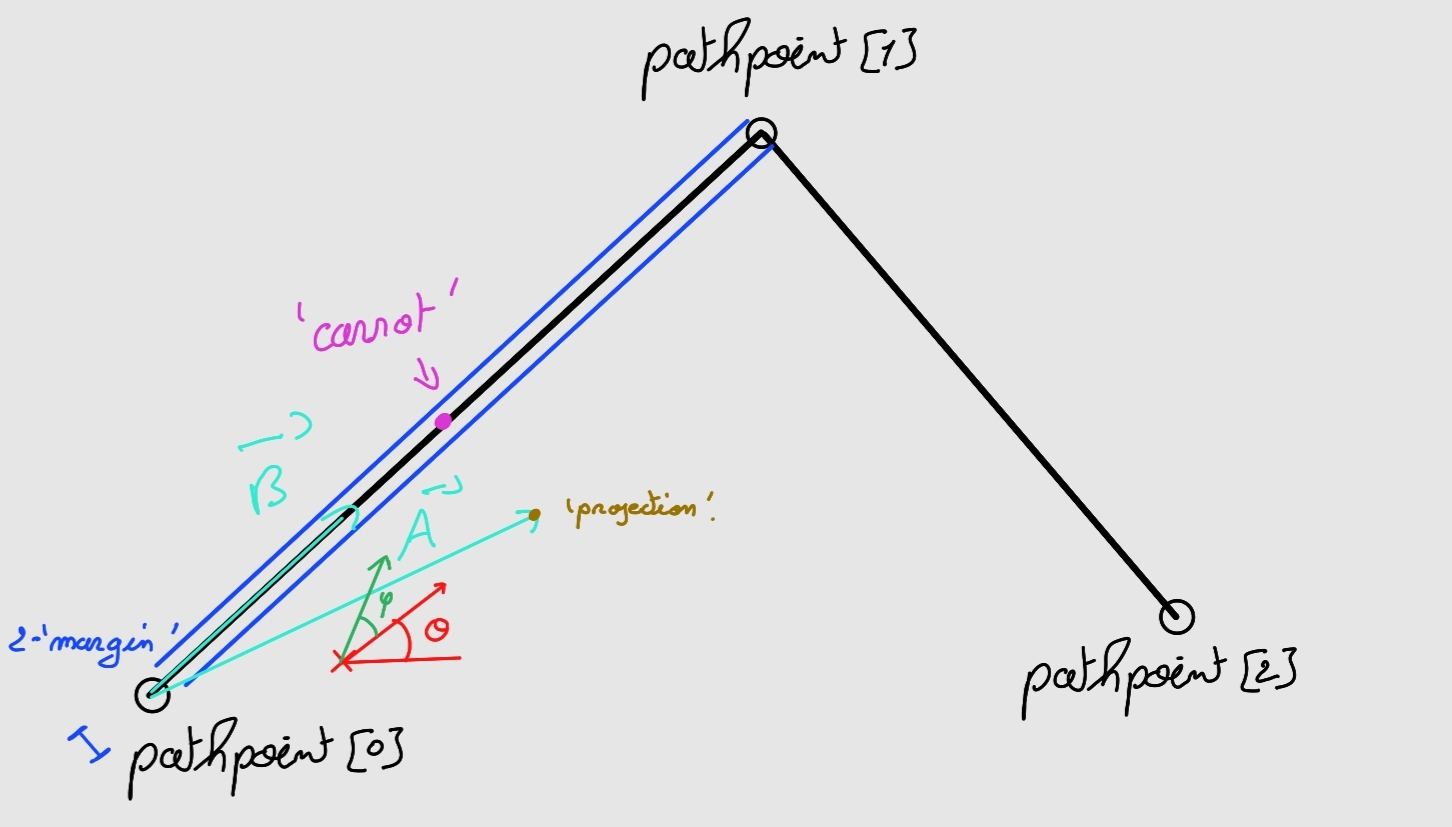 pathpoint [1]
'carrot'
B
A
'projection'.
φ
θ
2-'margin'
pathpoint [2]
pathpoint [0]